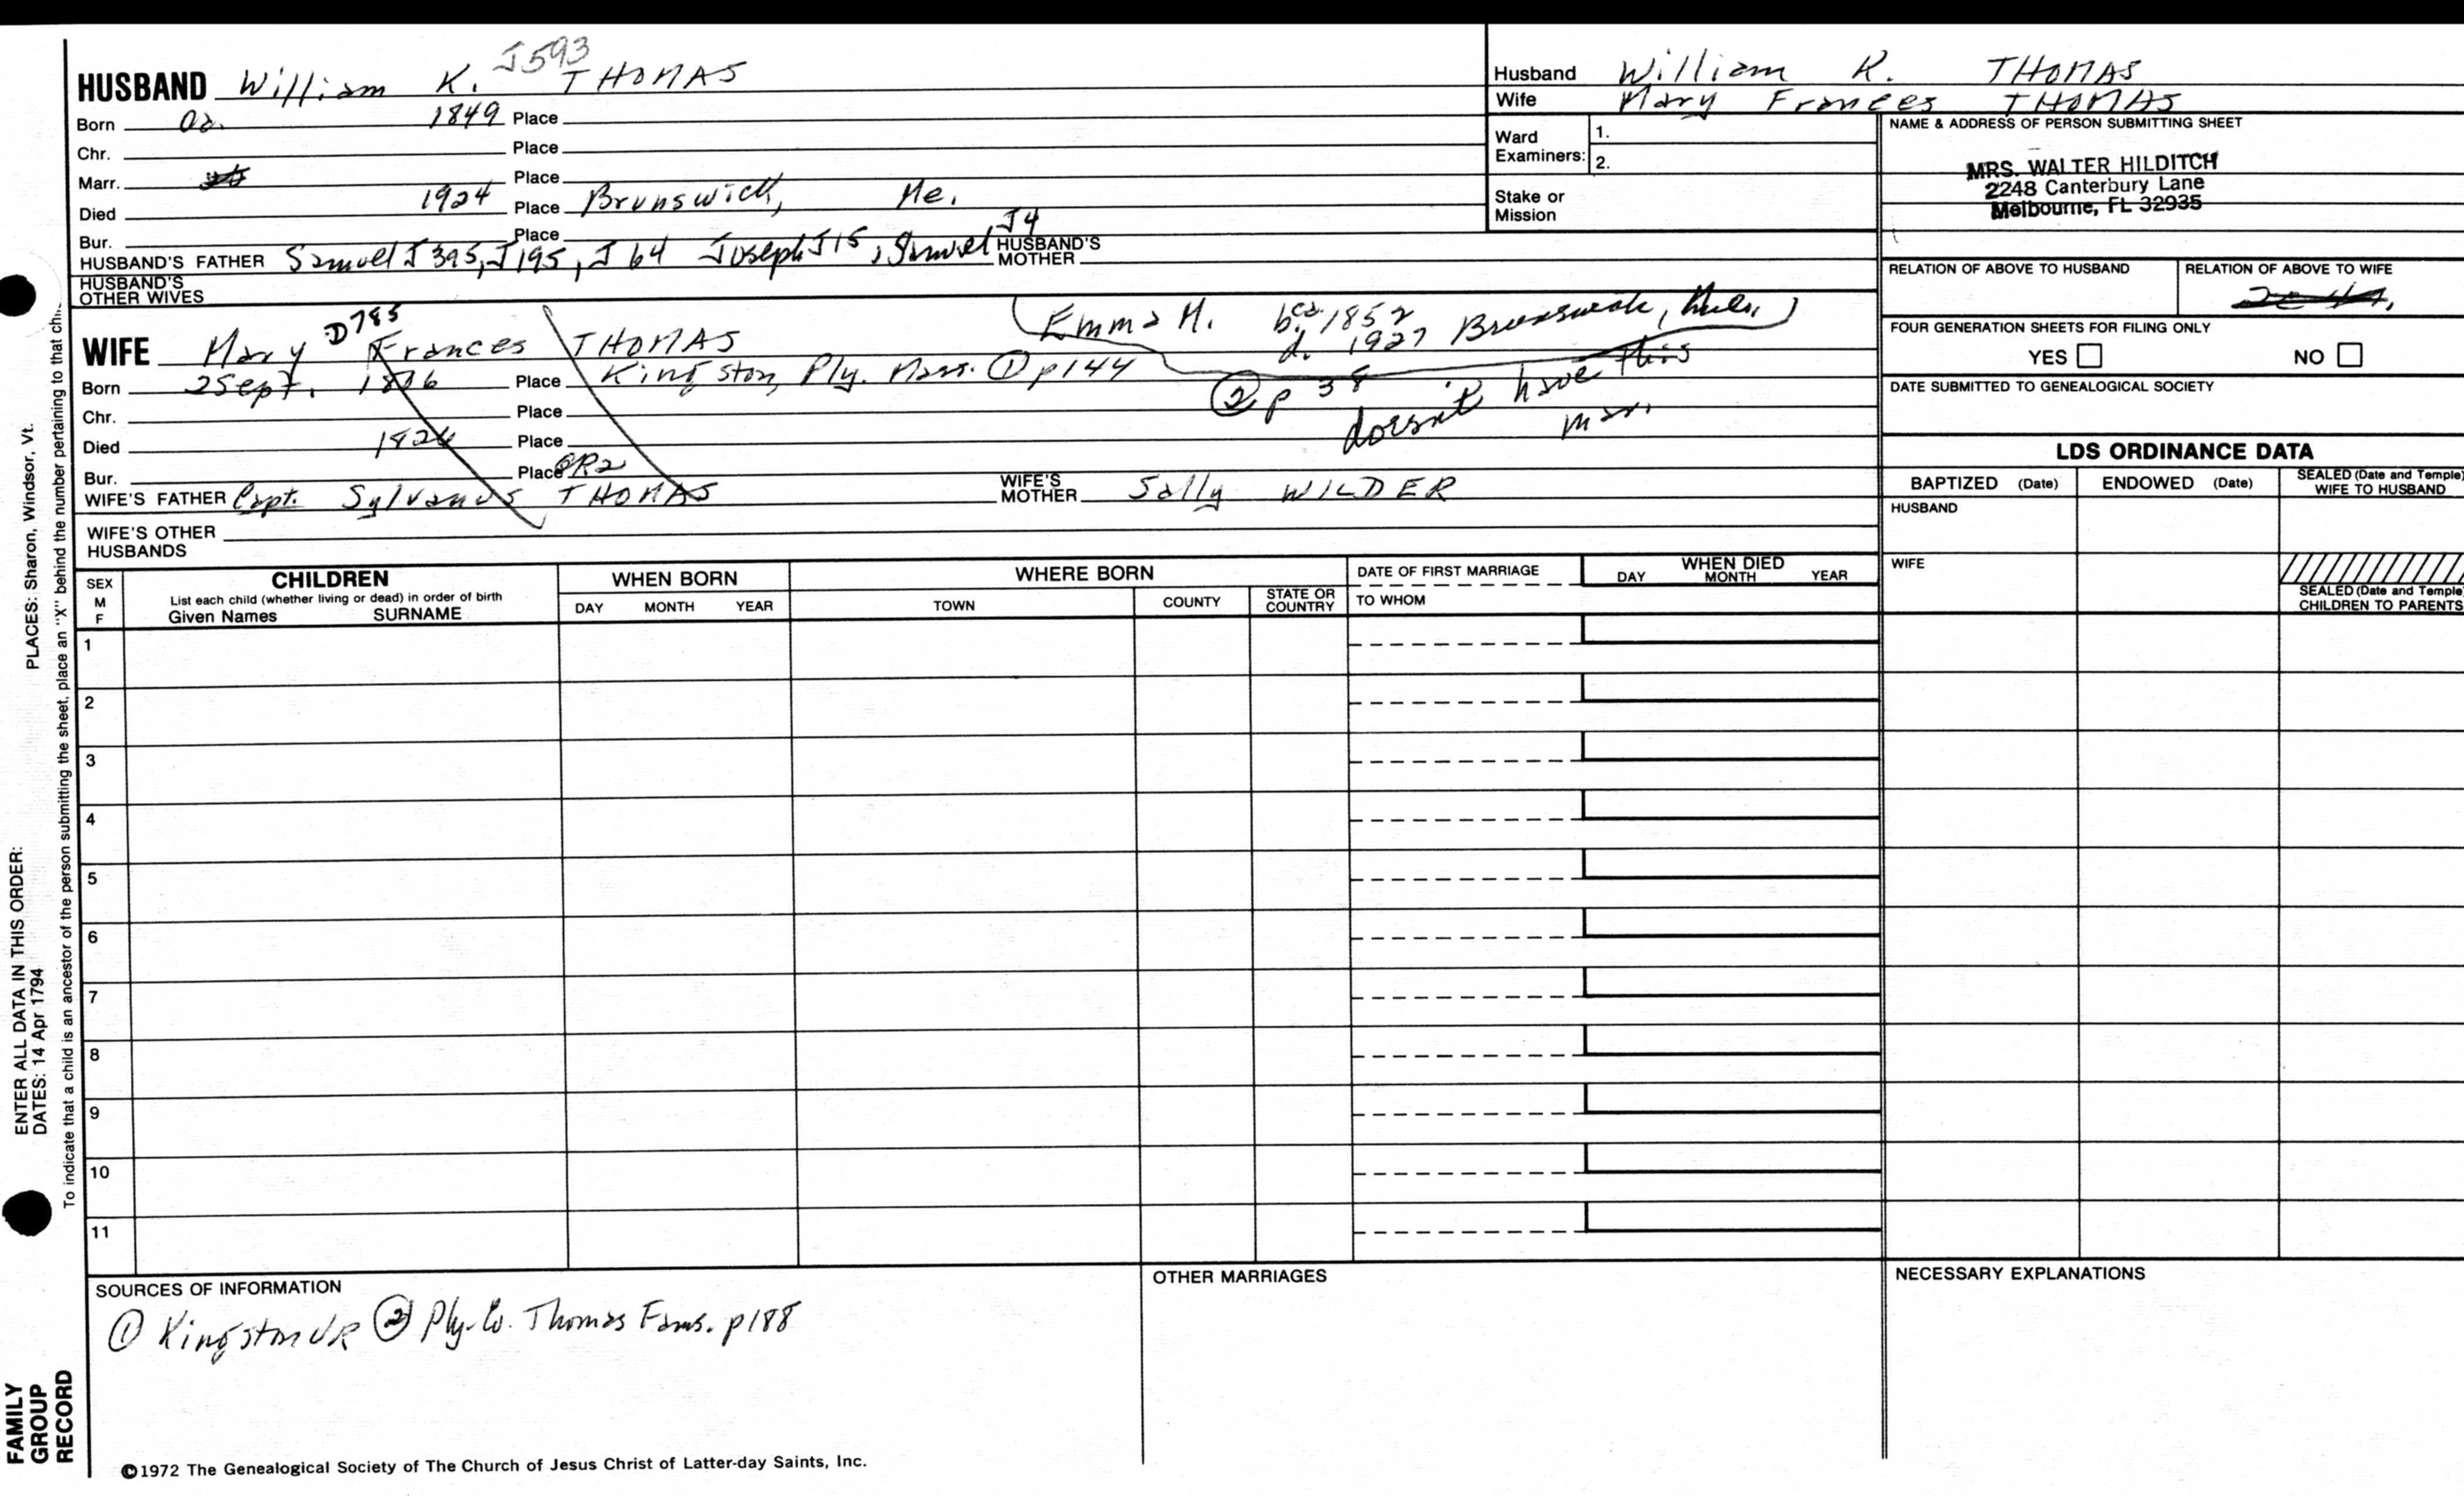 J593
HUSBAND William K. THOMAS
Born ca. 1849 Place
Chr. Place
Marr. Place
Died 1924 Place Brunswick, Me.
Bur. Place
HUSBAND'S FATHER Samuel J395, J195, J64 Joseph J15, Samuel J4 HUSBAND'S MOTHER
HUSBAND'S OTHER WIVES
Husband William K. THOMAS
Wife Mary Frances THOMAS
Ward Examiners: 1.
2.
Stake or Mission
NAME & ADDRESS OF PERSON SUBMITTING SHEET
MRS. WALTER HILDITCH
2248 Canterbury Lane
Melbourne, FL 32935
RELATION OF ABOVE TO HUSBAND RELATION OF ABOVE TO WIFE
FOUR GENERATION SHEETS FOR FILING ONLY
YES NO
DATE SUBMITTED TO GENEALOGICAL SOCIETY
D785
WIFE Mary Frances THOMAS
Emma H. b. ca 1852
d. 1927 Brunswick,
Born 2 Sept. Place Kingston, Ply. Mass. ① p144
② p 38 doesn't have this
mar.
Chr. Place
Died Place
Bur. Place PR2
WIFE'S FATHER Capt. Sylvanus THOMAS WIFE'S MOTHER Sally WILDER
WIFE'S OTHER HUSBANDS
LDS ORDINANCE DATA
BAPTIZED (Date) ENDOWED (Date) SEALED (Date and Temple) WIFE TO HUSBAND
HUSBAND
WIFE
SEALED (Date and Temple) CHILDREN TO PARENTS
SEX M F
CHILDREN
List each child (whether living or dead) in order of birth
Given Names SURNAME
WHEN BORN
DAY MONTH YEAR
WHERE BORN
TOWN COUNTY STATE OR COUNTRY
DATE OF FIRST MARRIAGE
TO WHOM
WHEN DIED
DAY MONTH YEAR
1
2
3
4
5
6
7
8
9
10
11
SOURCES OF INFORMATION
① Kingston VR ② Ply. Co. Thomas Fams. p188
OTHER MARRIAGES
NECESSARY EXPLANATIONS
©1972 The Genealogical Society of The Church of Jesus Christ of Latter-day Saints, Inc.
FAMILY GROUP RECORD
ENTER ALL DATA IN THIS ORDER:
DATES: 14 Apr 1794
PLACES: Sharon, Windsor, Vt.
To indicate that a child is an ancestor of the person submitting the sheet, place an "X" behind the number pertaining to that